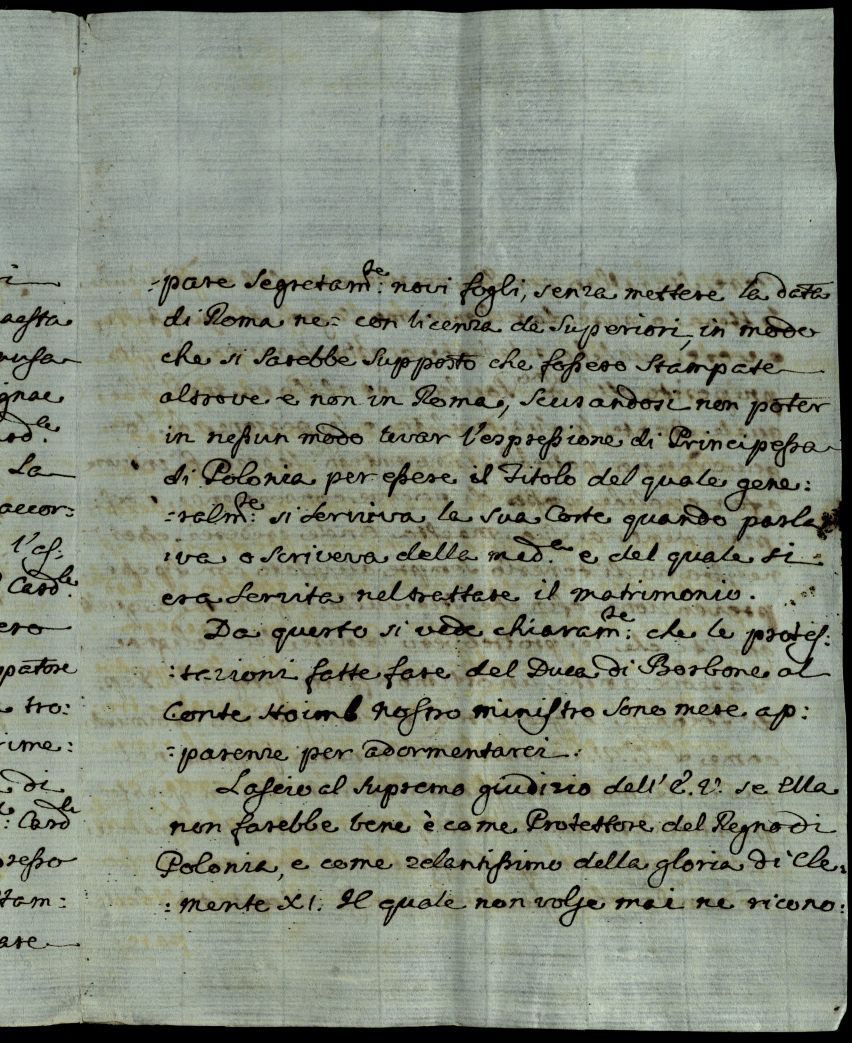 i
aesta
musa
gnae
ard.le
La
accor:
l'es:
Card.le
ero
patore
tro:
rime:
di
: Card.li
presso
stam:
are
:pare segretam.te: novi fogli, senza mettere la data
di Roma ne: con licenza de Superiori, in modo
che si sarebbe supposto che fossero stampate
altrove e non in Roma, scusandosi non poter
in nessun modo levar l'espressione di Principessa
di Polonia per essere il Titolo del quale gene:
:ralm.te: si serviva la sua Corte quando parla
iva o scriveva della med.a e del quale si
era servita nel trattare il matrimonio.
Da questo si vede chiaram.te: che le protes:
:tazioni fatte fare del Duca di Borbone al
Conte Hoimb nostro ministro sono mere ap:
:parenze per adormentarci.
Lascio al supremo giudizio dell' E. V. se Ella
non farebbe bene è come Protettore del Regno di
Polonia, e come zelantissimo della gloria di Cle:
:mente XI. Il quale non volse mai ne ricono: